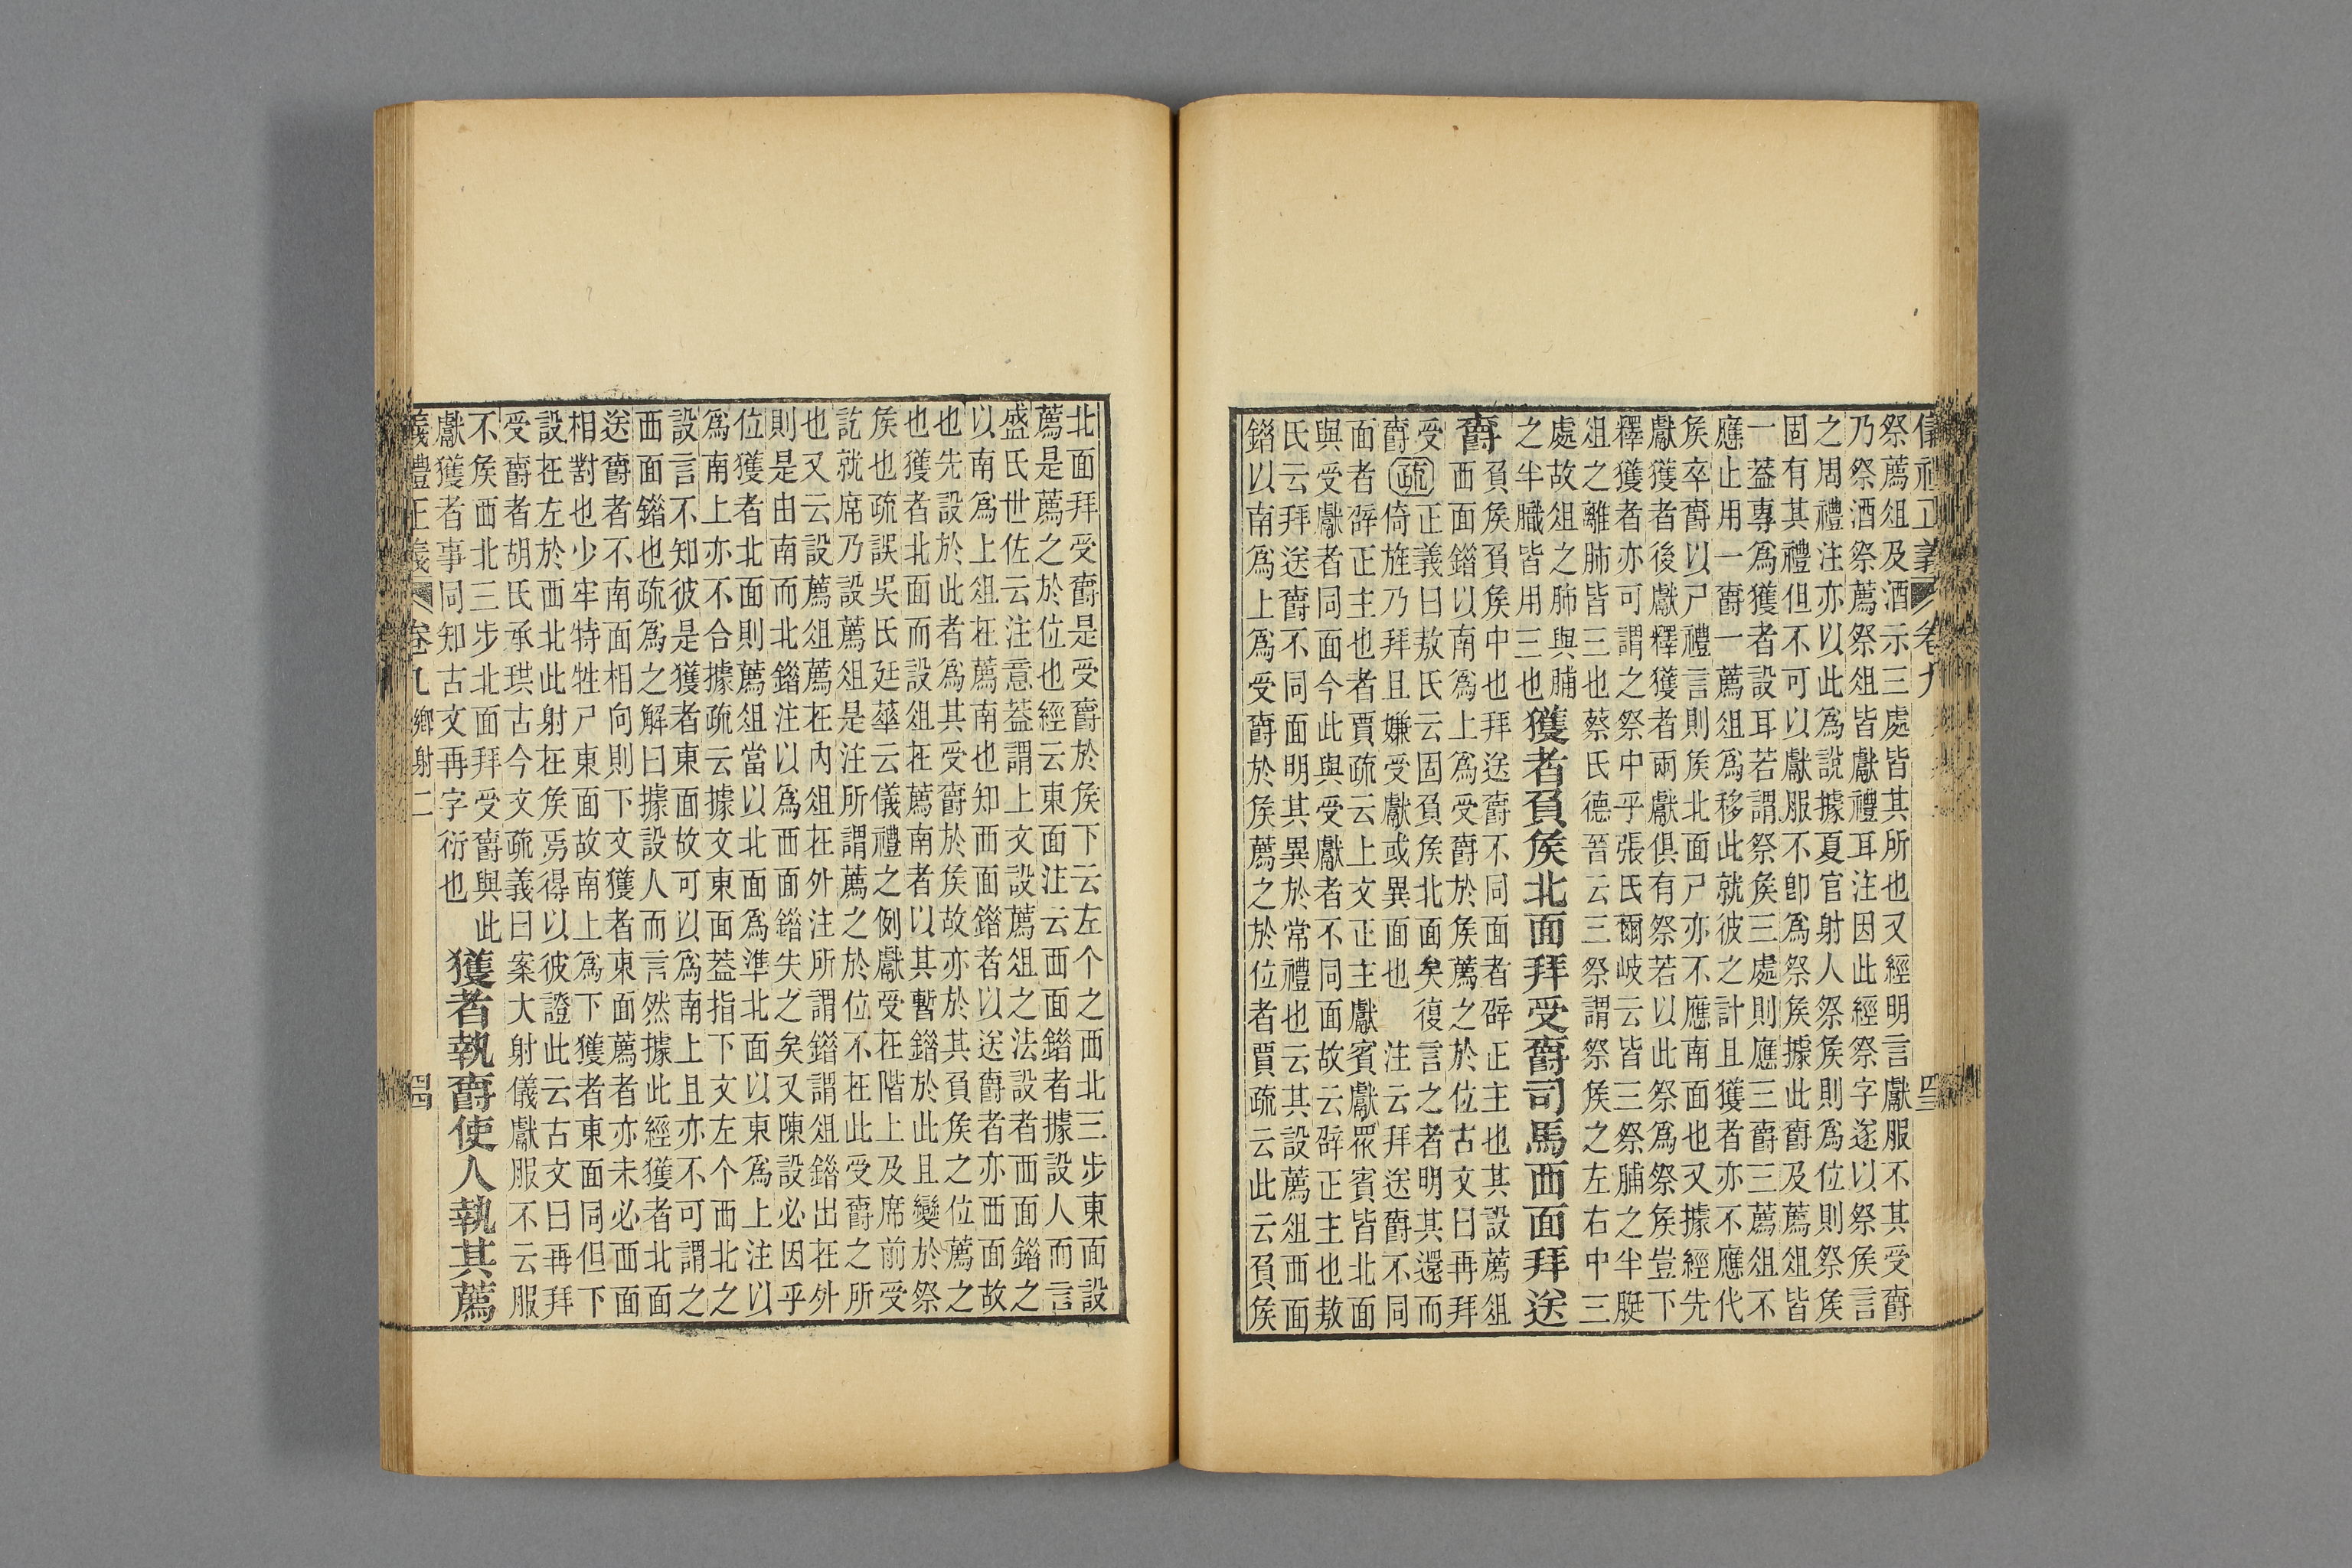 儀禮正義 卷九 四三
祭薦俎及酒示三處皆其所也又經明言獻服不其受爵
乃祭酒祭薦祭俎皆獻禮耳注因此經祭字遂以祭矦言
之周禮注亦以此爲說據夏官射人祭矦則爲位則祭矦
固有其禮但不可以獻服不卽爲祭矦據此爵及薦俎皆
一蓋專爲獲者設耳若謂祭矦三處則應三爵三薦俎不
應止用一爵一薦俎爲移此就彼之計且獲者亦不應代
矦卒爵以尸禮言則矦北面尸亦不應南面也又據經先
獻獲者後獻釋獲者兩獻俱有祭若以此祭爲祭矦豈下
釋獲者亦可謂之祭中乎張氏爾岐云皆三祭脯之半脡
俎之離肺皆三也蔡氏德晉云三祭謂祭矦之左右中三
處故俎之肺與脯
之半膱皆用三也
獲者負矦北面拜受爵司馬西面拜送
爵
負矦負矦中也拜送爵不同面者辟正主也其設薦俎
西面錯以南爲上爲受爵於矦薦之於位古文曰再拜
受
爵
疏
正義曰敖氏云固負矦北面矣復言之者明其還而
倚旌乃拜且嫌受獻或異面也 注云拜送爵不同
面者辟正主也者賈疏云上文正主獻賓獻眾賓皆北面
與受獻者同面今此與受獻者不同面故云辟正主也敖
氏云拜送爵不同面明其異於常禮也云其設薦俎西面
錯以南爲上爲受爵於矦薦之於位者賈疏云此云負矦
北面拜受爵是受爵於矦下云左个之西北三步東面設
薦是薦之於位也經云東面注云西面錯者據設人而言
盛氏世佐云注意蓋謂上文設薦俎之法設者西面錯之
以南爲上俎在薦南也知西面錯者以送爵者亦西面故
也先設於此者爲其受爵於矦故亦於其負矦之位薦之
也獲者北面而設俎在薦南者以其暫錯於此且變於祭
矦也疏誤吳氏廷華云儀禮之例獻受在階上及席前受
訖就席乃設薦俎是注所謂薦之於位不在此受爵之所
也又云設薦俎薦在內俎在外注所謂錯謂俎錯出在外
則是由南而北錯注以爲西面錯失之矣又陳設必因乎
位獲者北面則薦俎當以北面爲準北面以東爲上注以
爲南上亦不合據疏云據文東面蓋指下文左个西北之
設言不知彼是獲者東面故可以爲南上且亦不可謂之
西面錯也疏爲之解曰據設人而言然據此經獲者北面
送爵者不南面相向則下文獲者東面薦者亦未必西面
相對也少牢特牲尸東面故南上爲下獲者東面同但下
設在左於西北此射在矦焉得以彼證此云古文曰再拜
受爵者胡氏承珙古今文疏義曰案大射儀獻服不云服
不矦西北三步北面拜受爵與此
獻獲者事同知古文再字衍也
獲者執爵使人執其薦
儀禮正義 卷九 鄉射二 四四